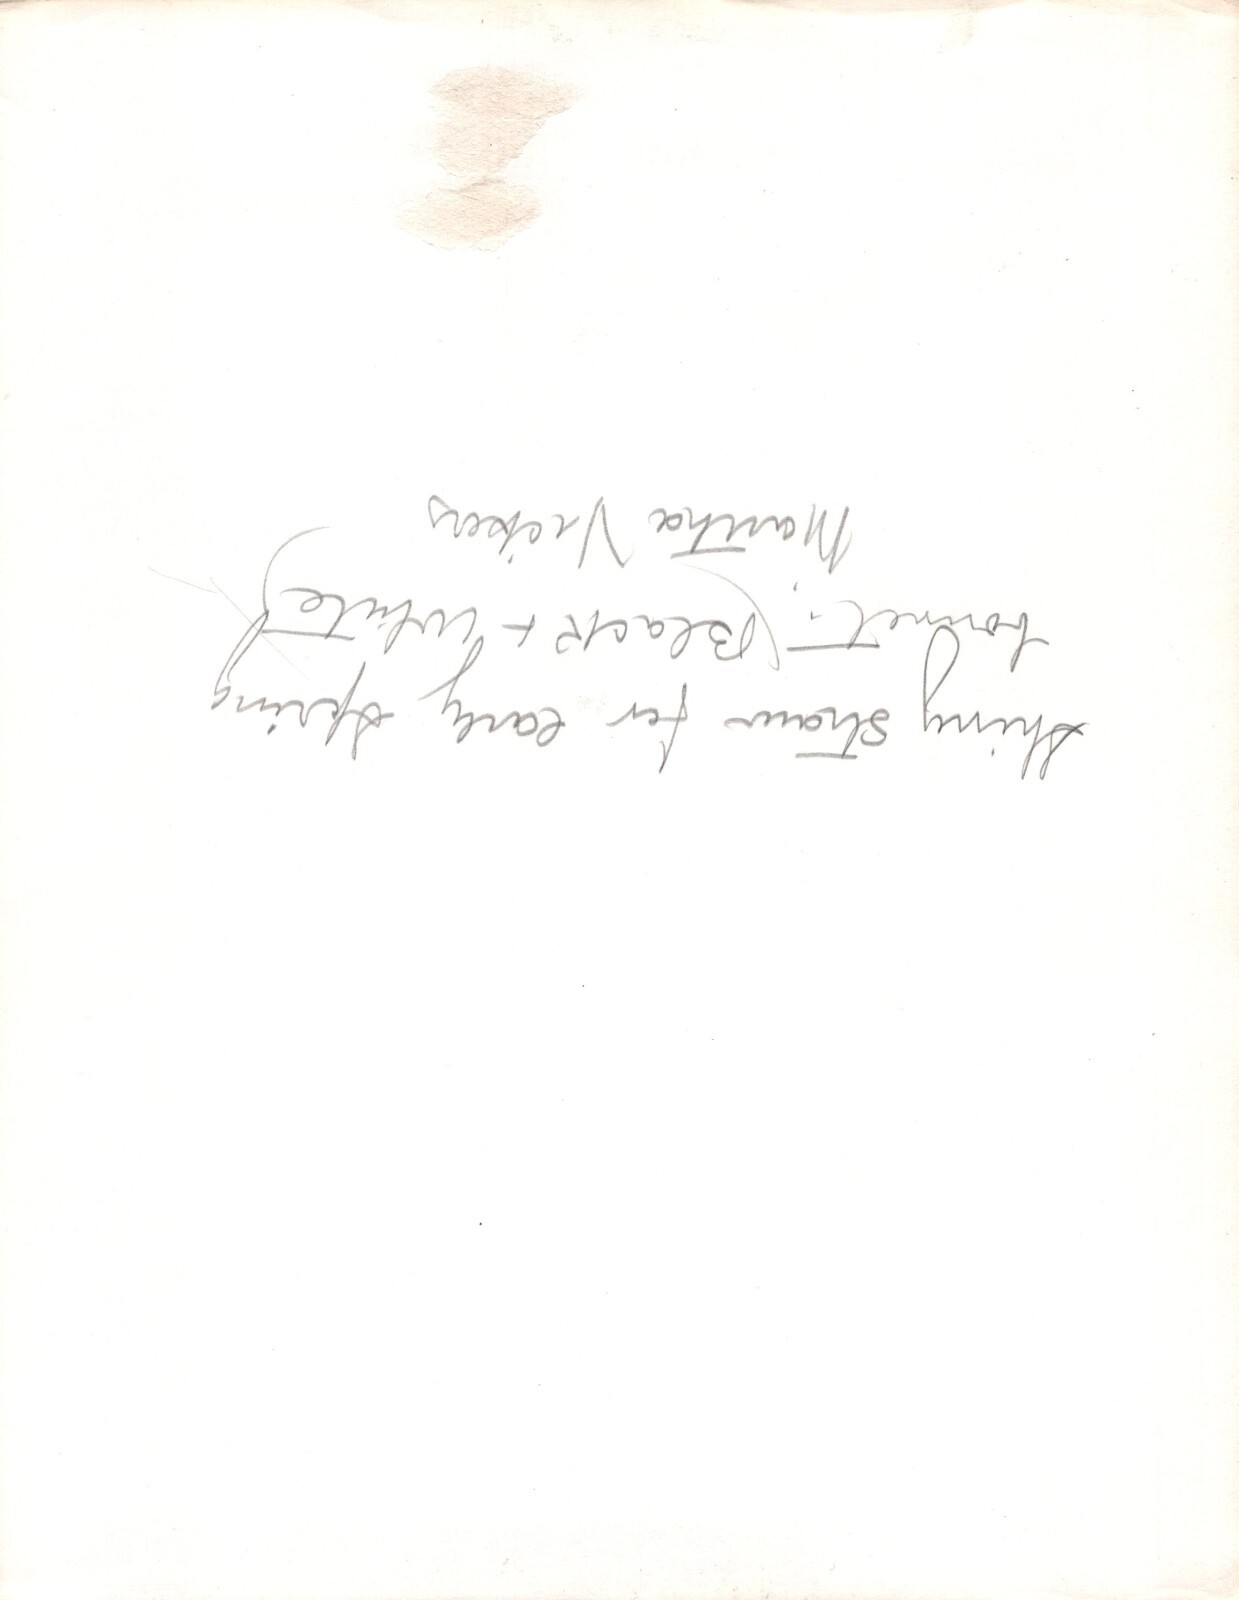 Shiny straw for early spring
bonnet. (Black + White)
Martha Vickers